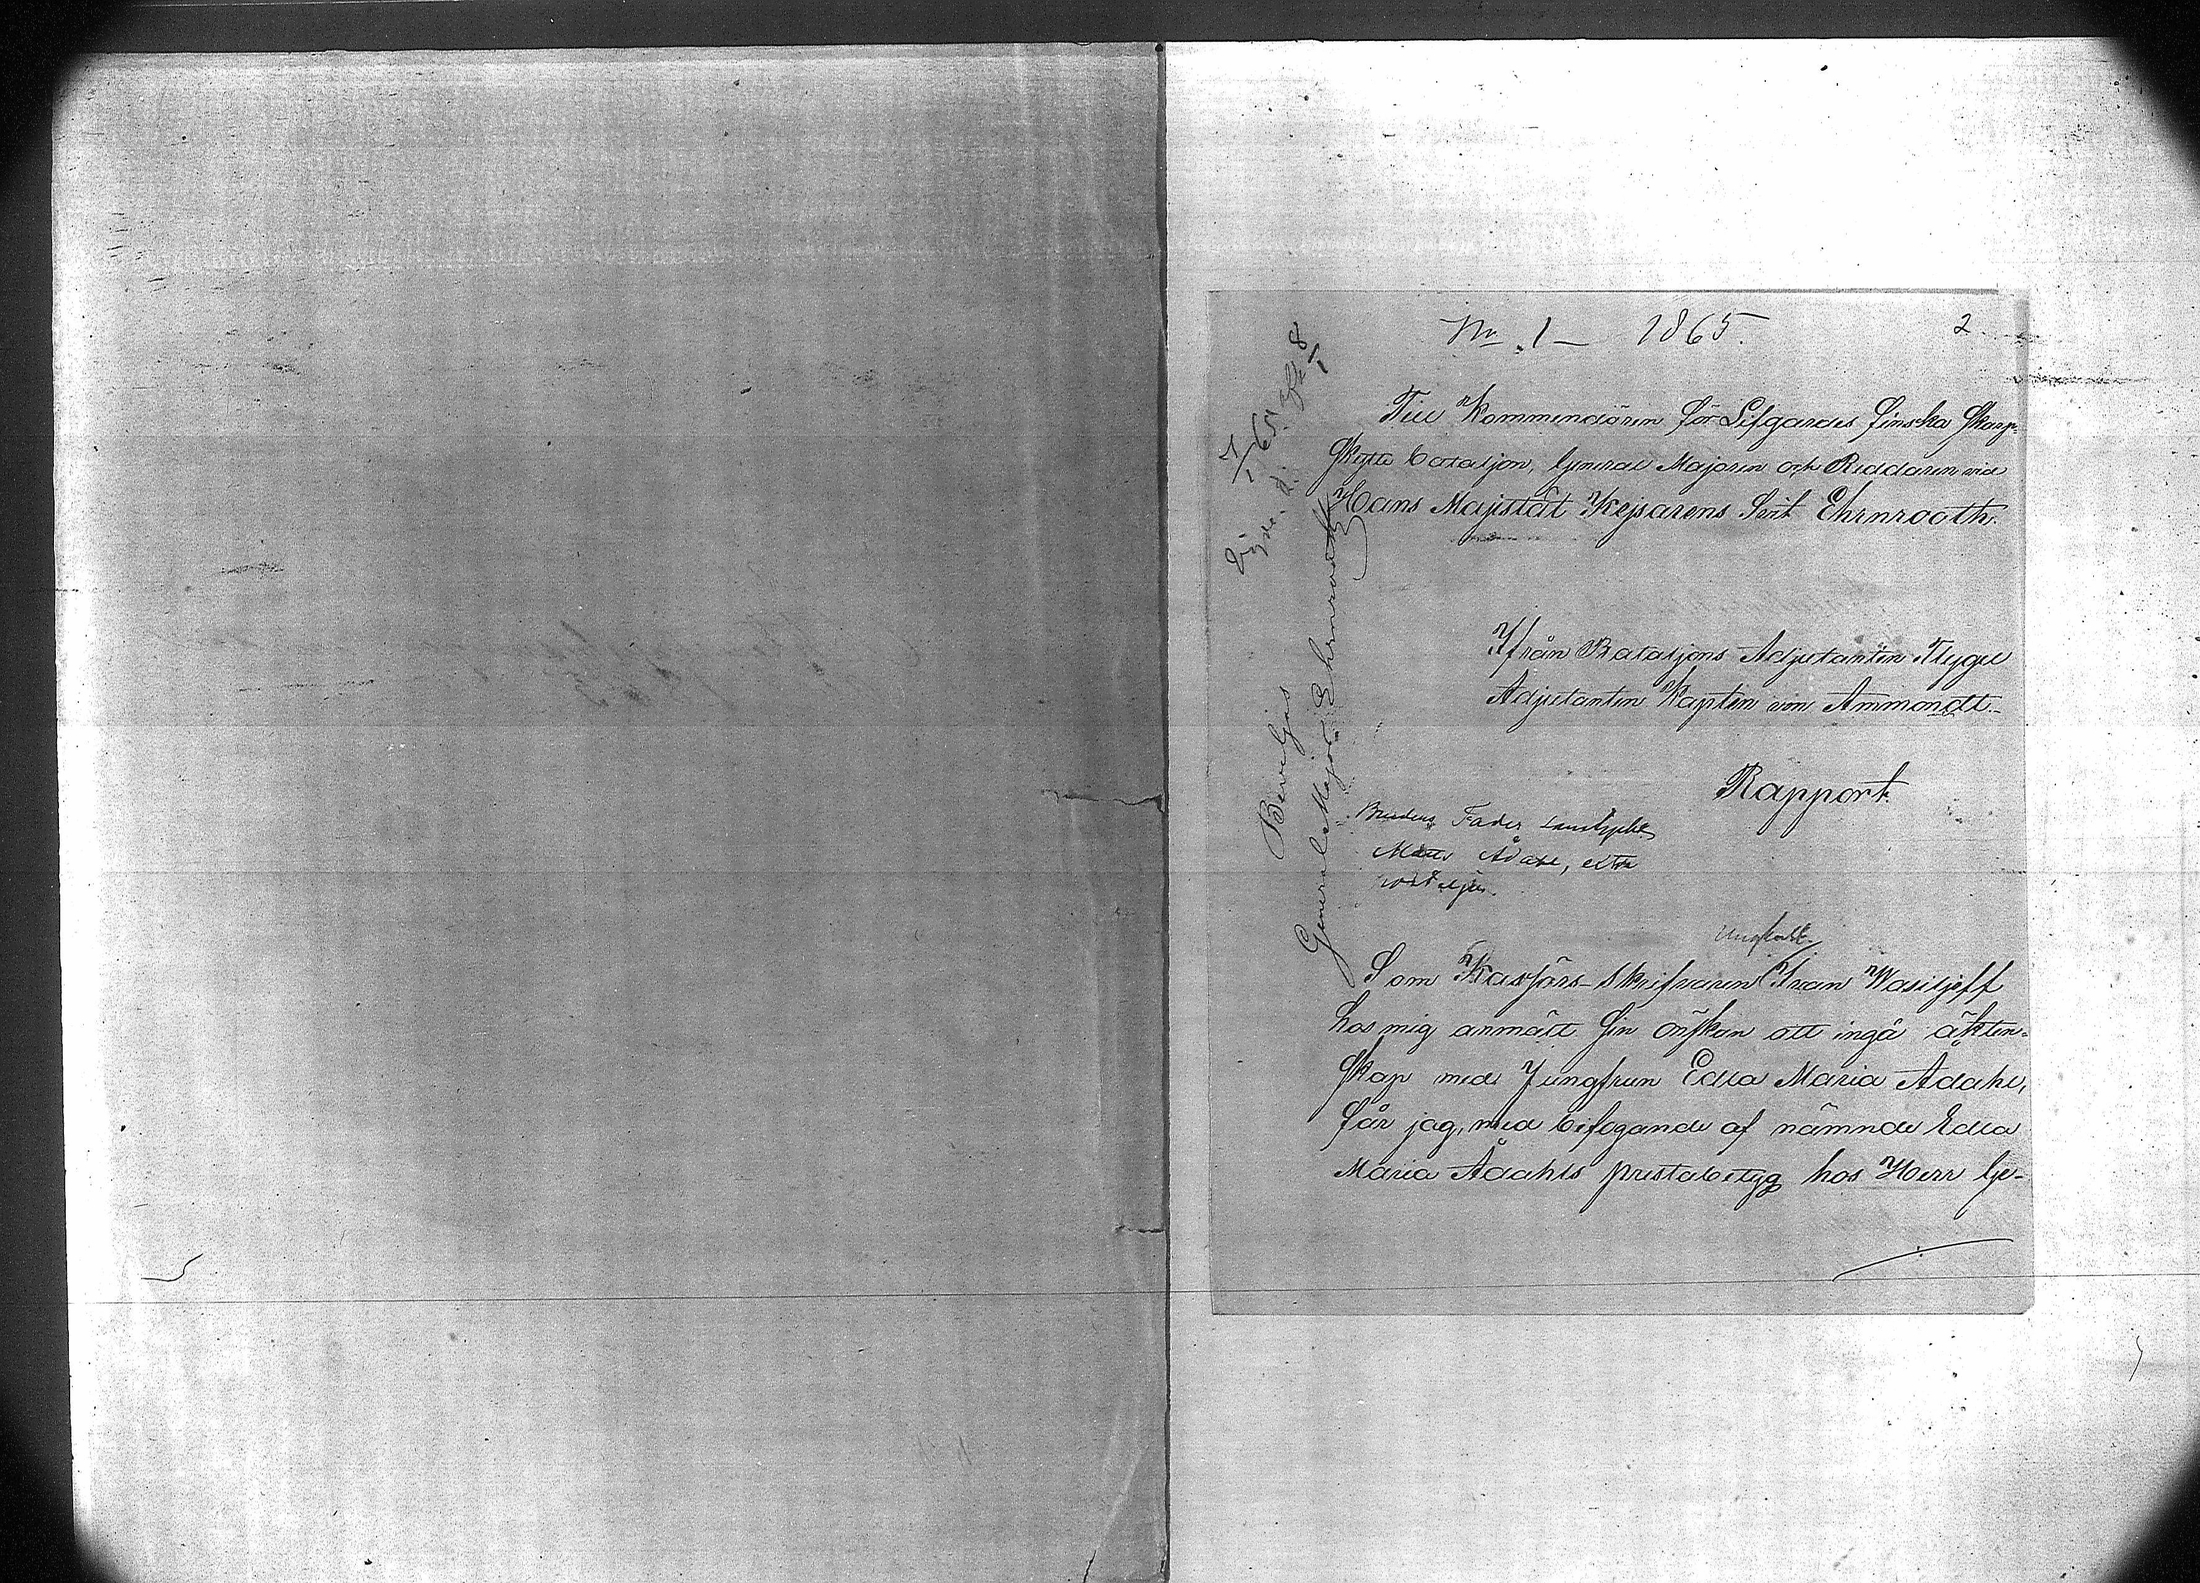 No 1 — 1865.
2
Till Kommendören för Lifgardes finska Skarp-
skytte bataljon, General Majoren och Riddaren vid
Hans Majestät Kejsarens Svit Ehrnrooth.
Ifrån Bataljons Adjutanten Flygel
Adjutanten Kapten von Ammondt.
Rapport
Beviljas
General Major Ehrnrooth
Brudens Fader
Mats Ådahl,
Ungkarl
Som Kasjörs-Skrifvaren Ivan Wasiljeff
hos mig anmält sin önskan att ingå äkten-
skap med Jungfrun Edla Maria Ådahl,
får jag, med bifogande af nämnde Edla
Maria Ådahls prestabetyg hos Herr Ge-